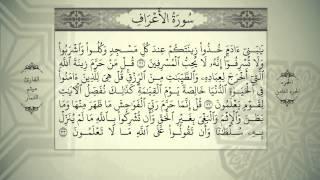 سُورَةُ الأَعْرَافِ
يَٰبَنِىٓ ءَادَمَ خُذُوا۟ زِينَتَكُمْ عِندَ كُلِّ مَسْجِدٍ وَكُلُوا۟ وَٱشْرَبُوا۟
وَلَا تُسْرِفُوٓا۟ إِنَّهُۥ لَا يُحِبُّ ٱلْمُسْرِفِينَ ٣١ قُلْ مَنْ حَرَّمَ زِينَةَ ٱللَّهِ
ٱلَّتِىٓ أَخْرَجَ لِعِبَادِهِۦ وَٱلطَّيِّبَٰتِ مِنَ ٱلرِّزْقِ قُلْ هِىَ لِلَّذِينَ ءَامَنُوا۟
فِى ٱلْحَيَوٰةِ ٱلدُّنْيَا خَالِصَةً يَوْمَ ٱلْقِيَٰمَةِ كَذَٰلِكَ نُفَصِّلُ ٱلْءَايَٰتِ
لِقَوْمٍ يَعْلَمُونَ ٣٢ قُلْ إِنَّمَا حَرَّمَ رَبِّىَ ٱلْفَوَٰحِشَ مَا ظَهَرَ مِنْهَا وَمَا
بَطَنَ وَٱلْإِثْمَ وَٱلْبَغْىَ بِغَيْرِ ٱلْحَقِّ وَأَن تُشْرِكُوا۟ بِٱللَّهِ مَا لَمْ يُنَزِّلْ
بِهِۦ سُلْطَٰنًا وَأَن تَقُولُوا۟ عَلَى ٱللَّهِ مَا لَا تَعْلَمُونَ ٣٣
الجزء
الجزء الثامن
القارئ
ميثم
التمار